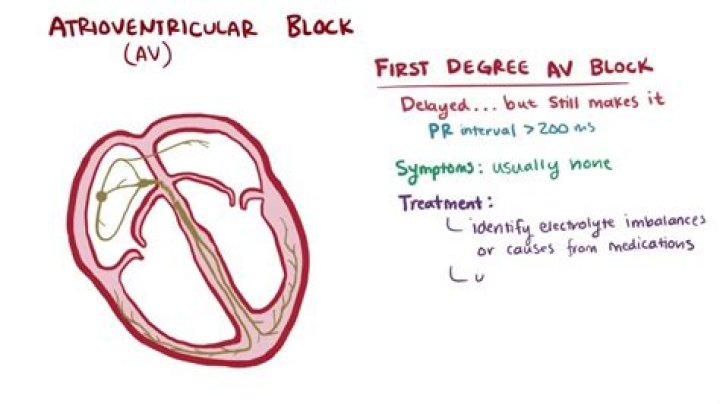 ATRIOVENTRICULAR BLOCK
(AV)
FIRST DEGREE AV BLOCK
Delayed... but still makes it
PR interval > 200 ms
Symptoms: usually none
Treatment:
identify electrolyte imbalances
or causes from medications
u